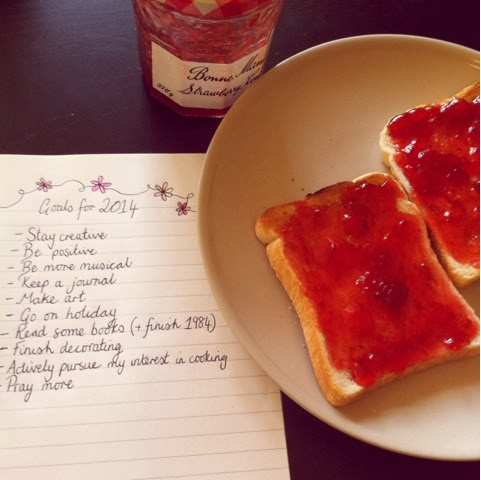 Bonne Maman
Strawberry Con
370g
Goals for 2014
- Stay creative
- Be positive
- Be more musical
- Keep a journal
- Make art
- Go on holiday
- Read some books (+ finish 1984)
- Finish decorating
- Actively pursue my interest in cooking
- Pray more